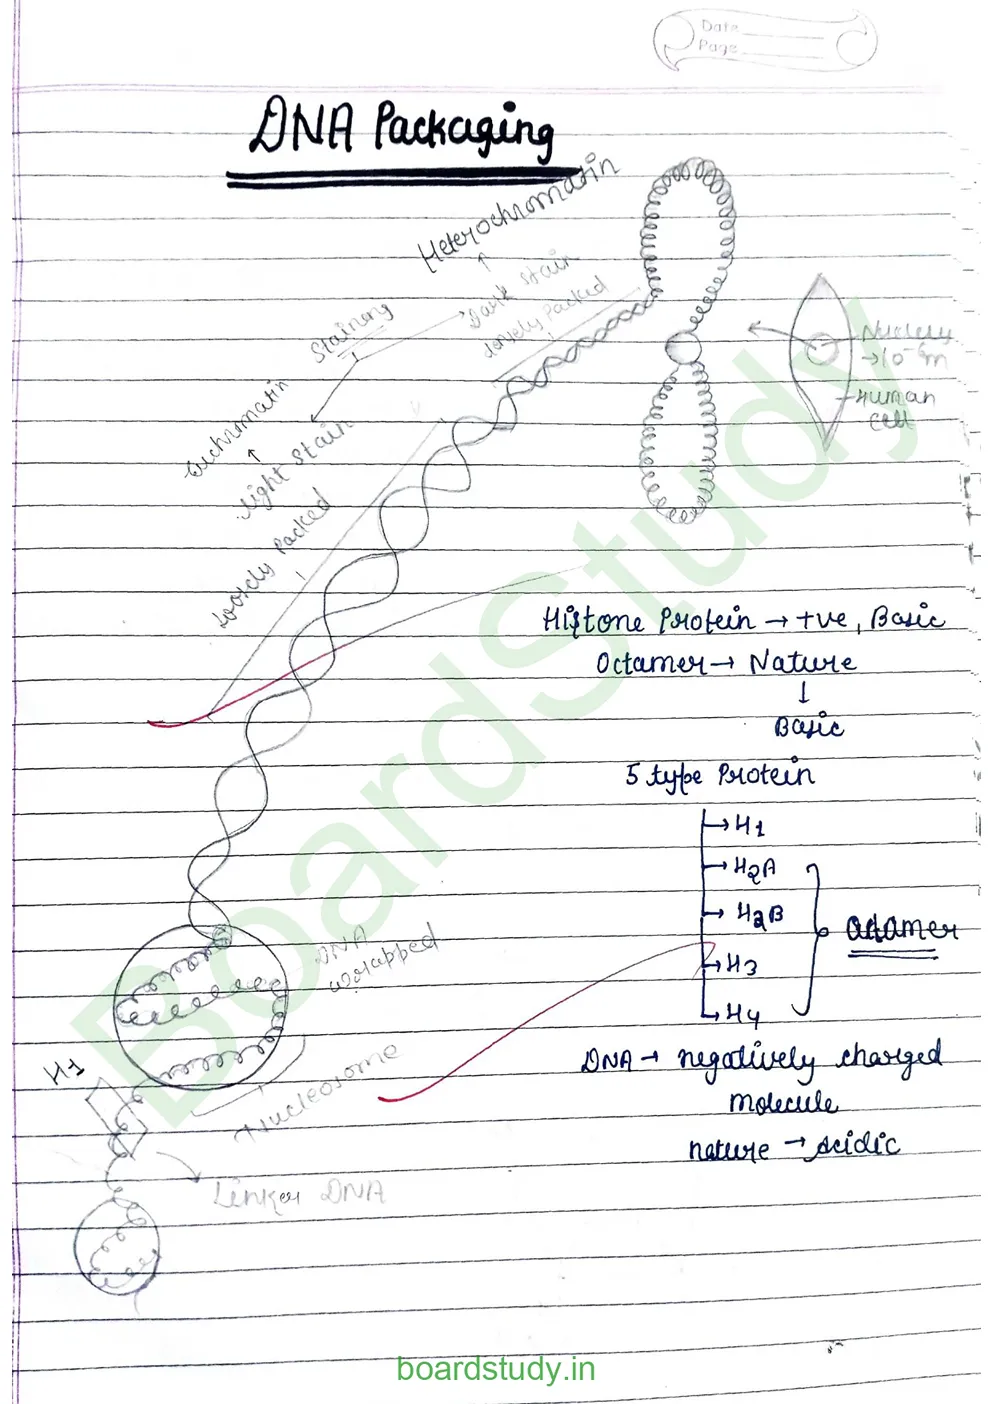 Date
Page
DNA Packaging
Heterochromatin
Dark Stain
densely Packed
Staining
Euchromatin
light Stain
loosely Packed
Nucleus
→10⁻⁶m
Human
Cell
Histone Protein → +ve, Basic
Octamer → Nature
↓
Basic
5 type Protein
→ H1
→ H2A
→ H2B
→ H3
→ H4
octamer
DNA → negatively charged
molecule
nature → acidic
DNA
wrapped
H1
Nucleosome
Linker DNA
BoardStudy
boardstudy.in